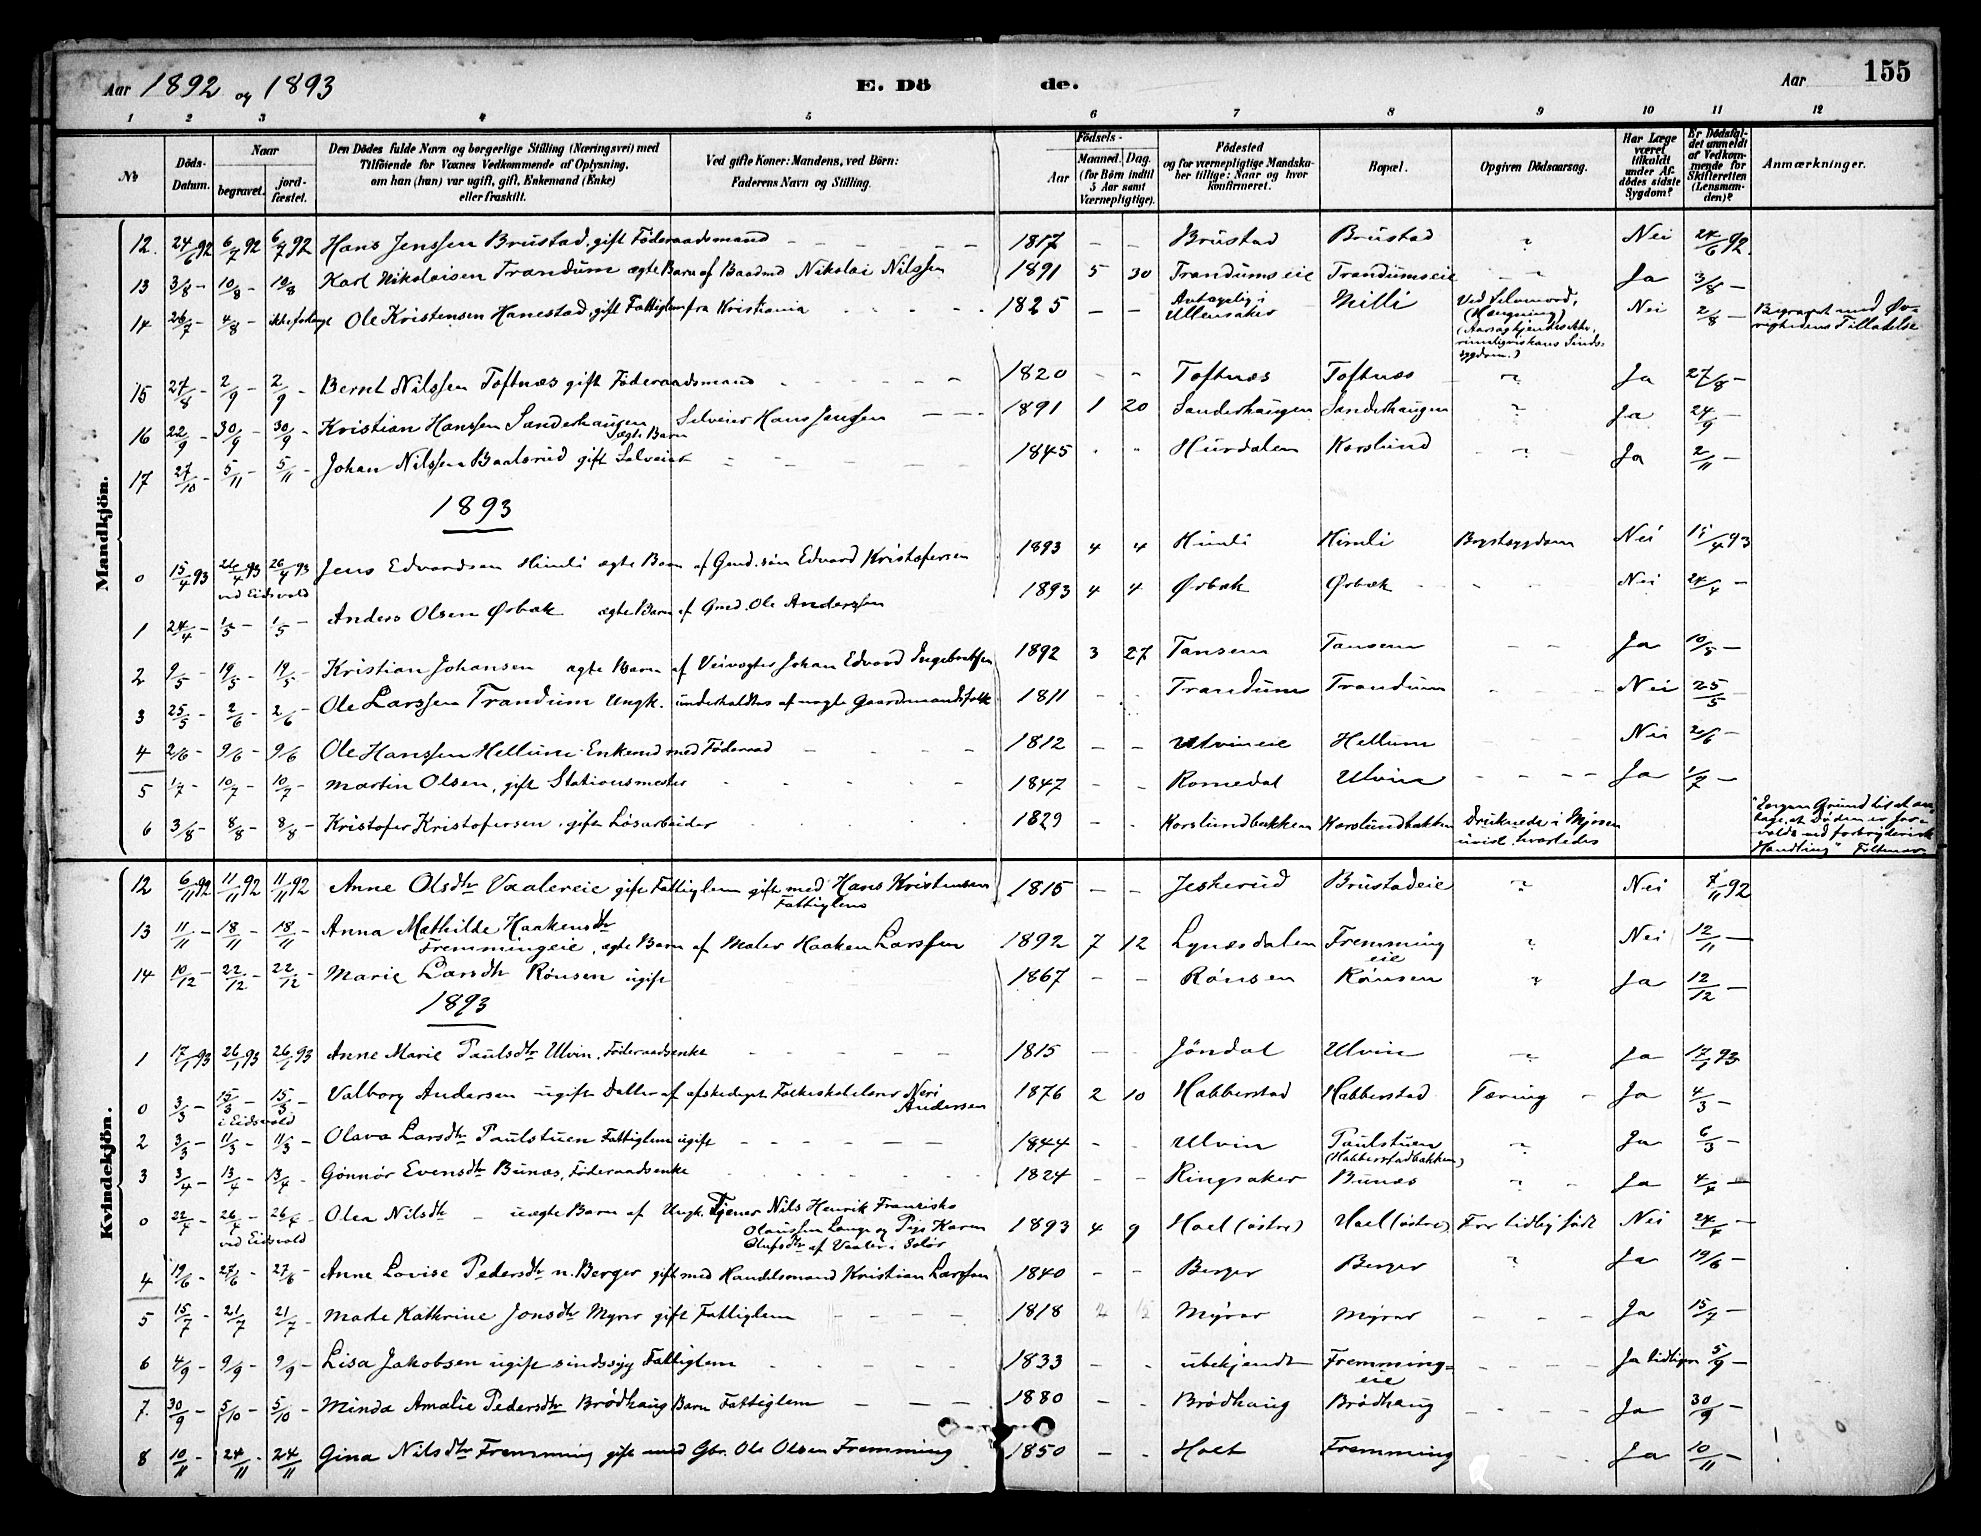 Aar 1892 og 1893 E. Dö de. Aar 155
1 2 3 4 5 6 7 8 9 10 11 12
№
Döds-Datum.
Naar
begravet.
jord-fæstet.
Den Dödes fulde Navn og borgerlige Stilling (Næringsvei) med
Tilføiende for Voxnes Vedkommende af Oplysning,
om han (hun) var ugift, gift, Enkemand (Enke)
eller fraskilt.
Ved gifte Koner: Mandens, ved Börn:
Faderens Navn og Stilling.
Födsels-
Aar
Maaned. Dag.
(for Börn indtil
5 Aar samt
Værnepligtige).
Födested
og for værnepligtige Mandska-
ber tillige: Naar og hvor
konfirmeret.
Bopæl.
Opgiven Dödsaarsag.
Har Læge
været
tilkaldt
under Af-
dödes sidste
Sygdom?
Er Dödsfal-
det anmeldt
af Vedkom-
mende for
Skifteretten
(Lensman-
den)?
Anmærkninger.
Mandkjön.
12. 24/6 92 6/7 92 6/7 92 Hans Jenssen Brustad, gift Föderaadsmand 1817 - - Brustad Brustad " Nei 24/6 92.
13 3/8 - 10/8 - 10/8 Karl Nikolaisen Trandum ægte Barn af Baadmd Nikolai Nilssen 1891 5 30 Trandumseie Trandumseie - Ja 3/8 -
14 26/7 - 4/8 - Ole Kristensen Hanestad, gift Fattiglem fra Kristiania 1825 - - Antagelig i Ullensaker Milli Ved Selvmord, (Hængning) Nei 2/8 - Begravet med Øv-
righedens Tilladelse
15 27/8 - 2/9 - 2/9 - Bernt Nilssen Toftnæs gift Föderaadsmand 1820 - - Toftnæs Toftnæs " Ja 27/8 -
16 22/9 - 30/9 - 30/9 - Kristian Hanssen Sanderhaugen ægte Barn Selveier Hans Jenssen 1891 1 20 Sanderhaugen Sanderhaugen " Ja 24/9 -
17 27/10 - 5/11 - 5/11 - Johan Nilssen Baalsrud gift Selveier 1845 " " Hurdalen Korslund " Ja 2/11 -
1893
0 15/4 93 26/4 93 26/4 93 Jens Edvardsen Himli ægte Barn af Gmd.sön Edvard Kristofersen 1893 4 4 Himli Himli Brystsygdom Nei 15/4 93
ved Eidsvold
1 24/4 - 1/5 - 1/5 - Anders Olsen Ørbæk ægte Barn af Gmd. Ole Anderssen 1893 4 4 Ørbæk Ørbæk - Nei 24/4 -
2 9/5 - 19/5 - 19/5 - Kristian Johansen ægte Barn af Veivogter Johan Edvard Ingebretsen 1892 3 27 Tansem Tansem - - Ja 10/5 -
3 25/5 - 2/6 - 2/6 - Ole Larssen Trandum Ungk. underholdtes af nogle Gaardmandsfolk 1811 - - Trandum Trandum - Nei 25/5 -
4 2/6 - 9/6 - 9/6 Ole Hanssen Hellum Enkemd med Föderaad 1812 - - Ulvineie Hellum - Nei 2/6 -
5 1/7 - 10/7 - 10/7 - Martin Olsen, gift Stationsmester 1847 - - Romedal Ulvin - - Ja 1/7 -
6 3/8 - 8/8 - 8/8 - Kristofer Kristofersen, gift Lösarbeider 1829 - - Korslundbakken Korslundbakken Druknede i Mjøsen
uvist hvorledes
"Ingen Grund til at an-
tage, at Döden er for-
voldt ved forbryderisk
Handling"
Kvindekjön.
12 6/11 92 11/11 92 11/11 92 Anne Olsdtr Vaalereie gift Fattiglem gift med Hans Kristensen 1815 - - Jeskerud Brustadeie " Nei 7/11 92
Fattiglem
13 11/11 - 18/11 - 18/11 - Anna Mathilde Haakensdtr
Fremmingeie, ægte Barn af Maler Haaken Larssen 1892 7 12 Lynæsdalen Fremming
eie " Nei 12/11 -
14 10/12 - 22/12 - 22/12 - Marie Larsdtr Rönsen ugift 1867 - - Rönsen Rönsen " Ja 12/12 -
1893
1 17/1 93 26/1 93 26/1 93 Anne Marie Paulsdtr Ulvin, Föderaadsenke 1815 - - Jöndal Ulvin - Ja 17/1 93
0 3/3 - 15/3 - 15/3 - Valborg Andersen ugift Datter af afskediget Folkeskolelærer Neri
Andersen 1876 2 10 Habberstad Habberstad Tæring - Ja 4/3 -
i Eidsvold
2 3/3 - 11/3 - 11/3 - Olava Larsdtr Paulstuen Fattiglem ugift 1844 - - Ulvin Paulstuen
(Habberstadbakken) " Ja 6/3 -
3 3/4 - 13/4 - 13/4 - Gönnör Evensdtr Bunæs, Föderaadsenke 1824 - - Ringsaker Bunæs " Ja 4/4 -
0 22/4 - 26/4 - 26/4 - Olea Nilsdtr - uægte Barn af Ungk. Tjener Nils Henrik Franzisko
Olaussen Lange og Pige Karen
Olufsdtr af Vaaler i Solör 1893 4 9 Hoel (östre) Hoel (östre) For tidlig födt Nei 24/4 -
ved Eidsvold
4 19/6 - 27/6 - 27/6 - Anne Lovise Pedersdtr n. Berger gift med Handelsmand Kristian Larssen 1840 - - Berger Berger " Ja 19/6 -
5 15/7 - 21/7 21/7 - Marte Kathrine Jonsdtr Myrer gift Fattiglem 1818 Myrer Myrer - Ja 15/7 -
6 4/9 - 9/9 - 9/9 - Lisa Jakobsen ugift sindssyg Fattiglem 1833 - - ubekjendt Fremming=
eie - Ja tidligere 5/9 -
7. 30/9 - 5/10 - 5/10 - Minda Amalie Pedersdtr Brödhaug Barn Fattiglem 1880 - - Brödhaug Brödhaug - Ja 30/9 -
8 10/11 - 24/11 - 24/11 Gina Nilsdtr Fremming gift med Gbr. Ole Olsen Fremming 1850 - - Holt Fremming - Ja 10/11 -